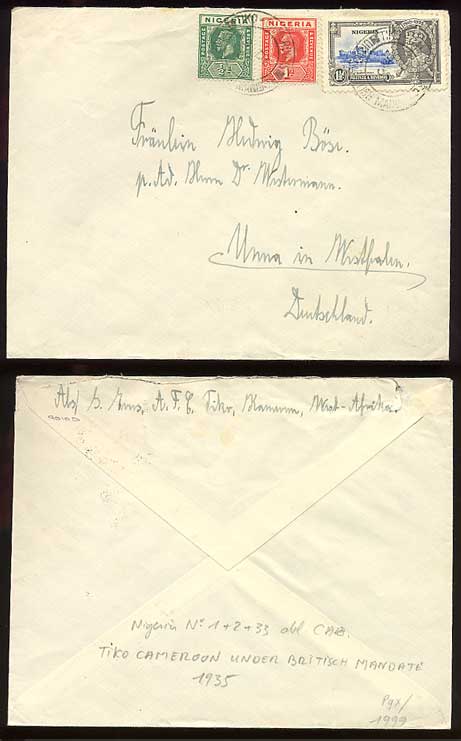 NIGERIA
POSTAGE
½d
NIGERIA
POSTAGE
1d
NIGERIA
1½
Fräulein Hedwig Böse.
p. Ad. Herrn Dr. Westermann.
Unna in Westfalen.
Deutschland.
A. F. C. Tiko, Kamerun, West-Afrika.
Nigeria N° 1+2+33 obl CAD.
TIKO CAMEROON UNDER BRITISCH MANDATE
1935
1999